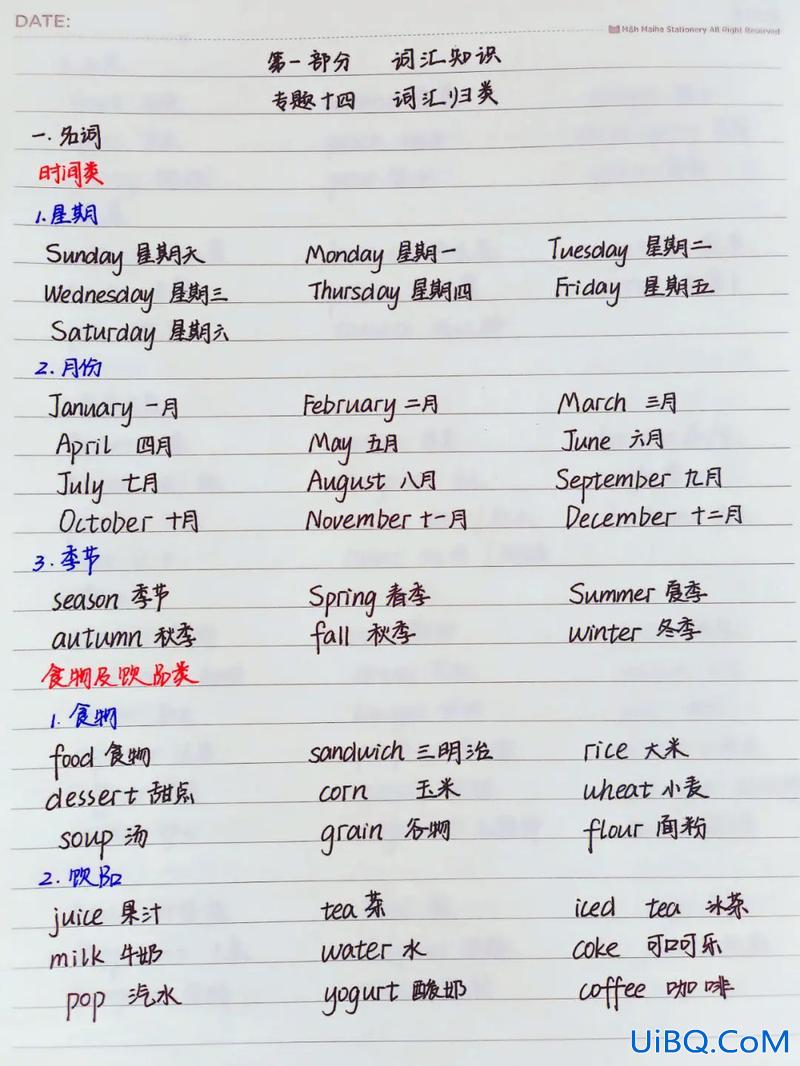 DATE:
H&h Haiha Stationery All Right Reserved
第一部分 词汇知识
专题十四 词汇归类
一.名词
时间类
1.星期
Sunday 星期天 Monday 星期一 Tuesday 星期二
Wednesday 星期三 Thursday 星期四 Friday 星期五
Saturday 星期六
2.月份
January 一月 February 二月 March 三月
April 四月 May 五月 June 六月
July 七月 August 八月 September 九月
October 十月 November 十一月 December 十二月
3.季节
season 季节 Spring 春季 Summer 夏季
autumn 秋季 fall 秋季 winter 冬季
食物及饮品类
1.食物
food 食物 sandwich 三明治 rice 大米
dessert 甜点 corn 玉米 wheat 小麦
soup 汤 grain 谷物 flour 面粉
2.饮品
juice 果汁 tea 茶 iced tea 冰茶
milk 牛奶 water 水 coke 可口可乐
pop 汽水 yogurt 酸奶 coffee 咖啡
UiBQ.CoM